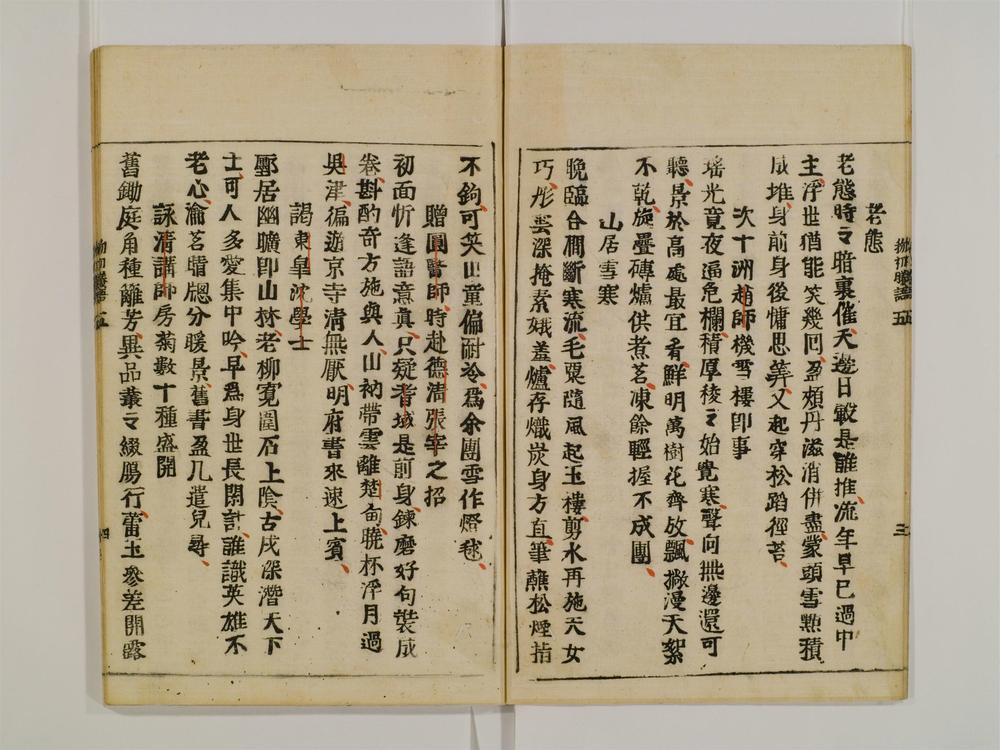 老態
老態時〻暗裏催天邊日轂是誰推流年早已過中
主浮世猶能笑幾回盈頰丹滋消併盡蒙頭雪點積
成堆身前身後慵思筭又起穿松蹈徑苔
次十洲趙師機雪樓即事
瑤光竟夜逼危欄積厚稜〻始覺寒聲向無邊還可
聽景於高處最宜看鮮明萬樹花齊放飄撒漫天絮
不乾旋疊磚爐供煮茗凍餘輕握不成團
山居雪寒
晚臨合澗斷寒流毛粟隨風起玉樓剪水再施天女
巧彤雲深掩素娥羞爐存熾炭身方直筆蘸松煙指
三
不鉤可笑山童偏耐冷為余團雪作燈毬
贈圓醫師時赴德清張宰之招
初面忻逢語意真只疑耆域是前身鍊磨好句裝成
卷斟酌奇方施與人山衲帶雲離楚甸曉杯浮月過
吳津徧遊京寺清無厭明府書來速上賓
謁東皐沈學士
墅居幽曠即山林老柳寬圍石上陰古戍深潛天下
士可人多愛集中吟早為身世長閑計誰識英雄不
老心瀹茗晴牕分暖景舊書盈几遣兒尋
詠清講師房菊數十種盛開
舊鋤庭角種籬芳異品叢〻綴鴈行蕾玉參差開露
四